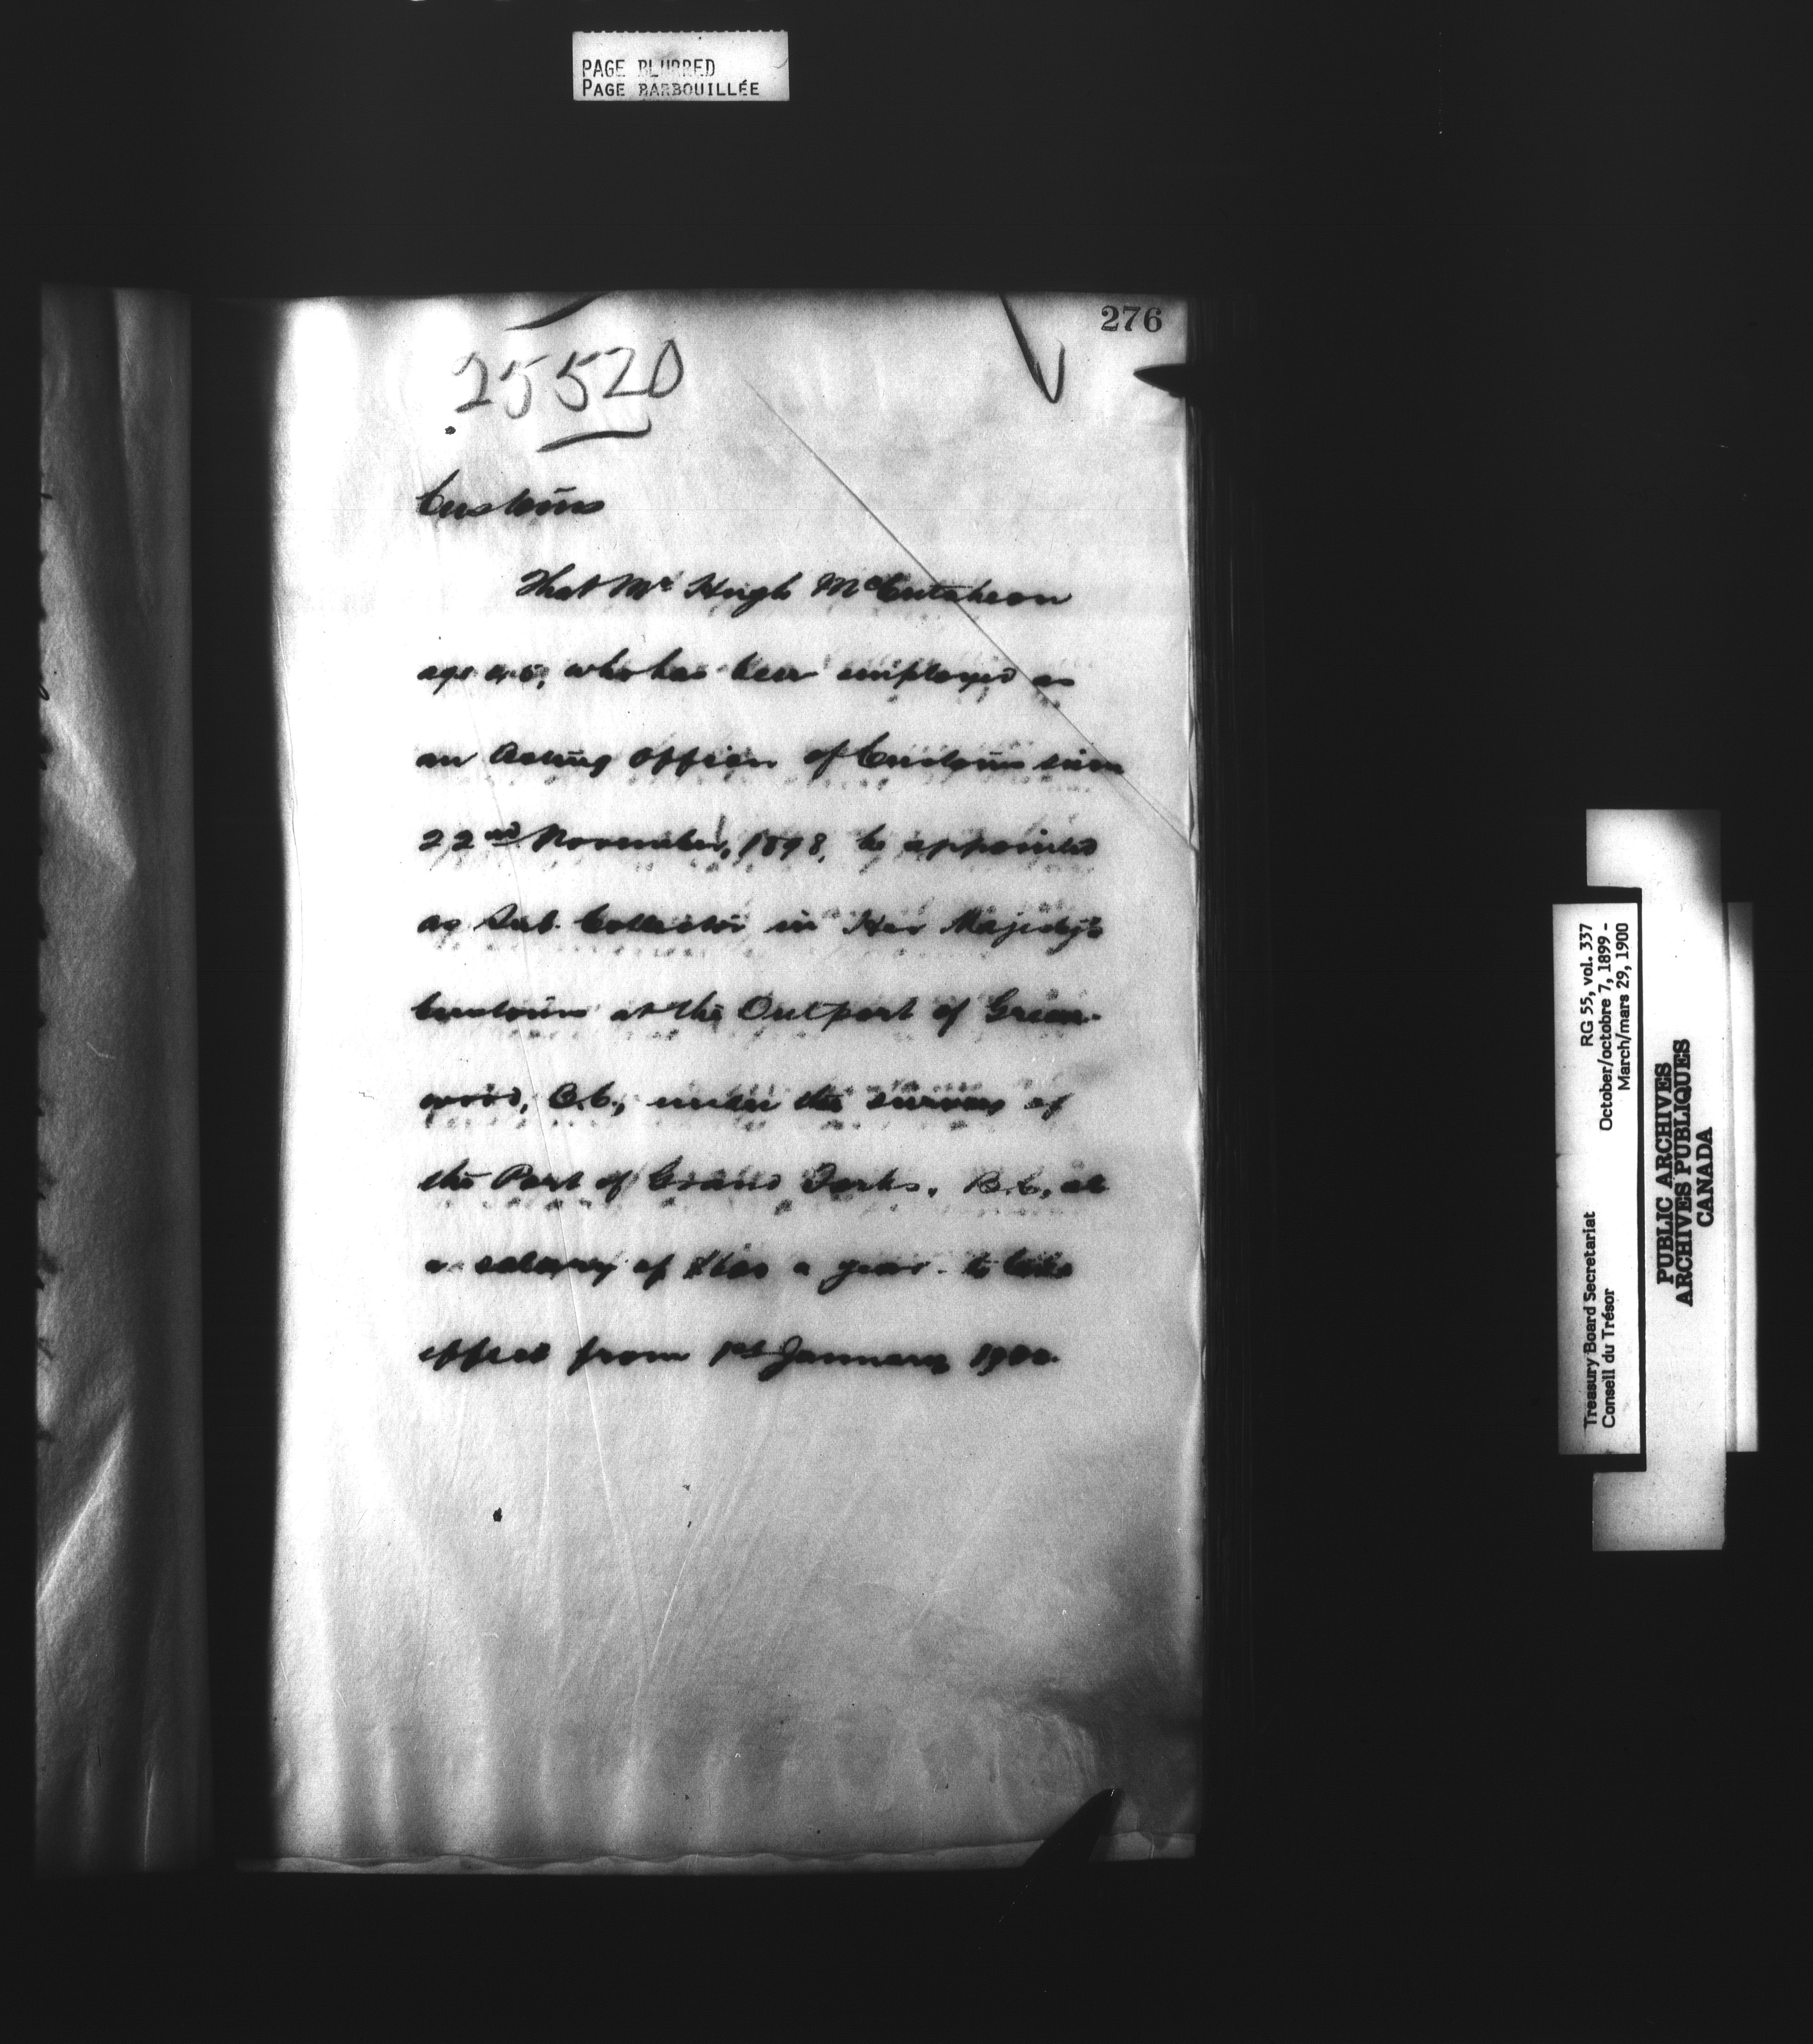 PAGE BLURRED
PAGE BARBOUILLÉE
276
25520
Customs
That Mr Hugh McCutcheon
age 40, who has been employed as
an Acting Officer of Customs since
22nd November, 1898, be appointed
as Sub. Collector in Her Majesty's
Customs at the Outport of Green-
wood, B.C., under the survey of
the Port of Grand Forks, B.C., at
a salary of a year. to take
effect from 1st January 1900.
Treasury Board Secretariat RG 55, vol. 337
Conseil du Trésor October/octobre 7, 1899 -
March/mars 29, 1900
PUBLIC ARCHIVES
ARCHIVES PUBLIQUES
CANADA